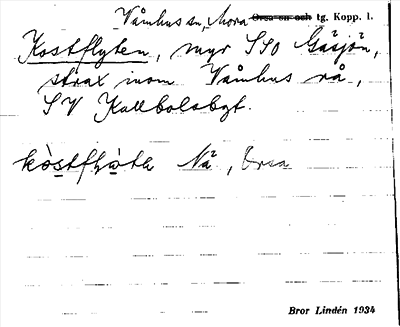 Våmhus sn, Mora ~~Orsa sn och~~ tg. Kopp. l.
Kostflyten, myr SSO Gåsjön,
strax inom Våmhus rå,
SV Kallbolsbgt.
kòstflòta Nå, Orsa
Bror Lindén 1934